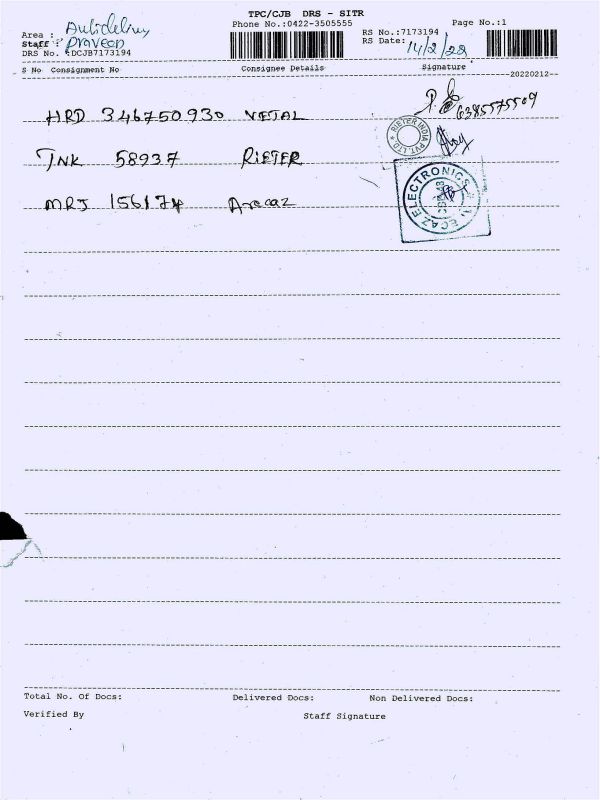 TPC/CJB DRS - SITR
Phone No.:0422-3505555
Page No.:1
Area :
Staff : Praveen
DRS No. :DCJB7173194
RS No.:7173194
RS Date: 14/2/22
S No Consignment No Consignee Details Signature
20220212
HRD 346750930 VETAL 6385575509
TNK 58937 RIETER
RIETER INDIA PVT. LTD
MRJ 156174 Arecaz
ELECTRONICS
Total No. Of Docs: Delivered Docs: Non Delivered Docs:
Verified By Staff Signature